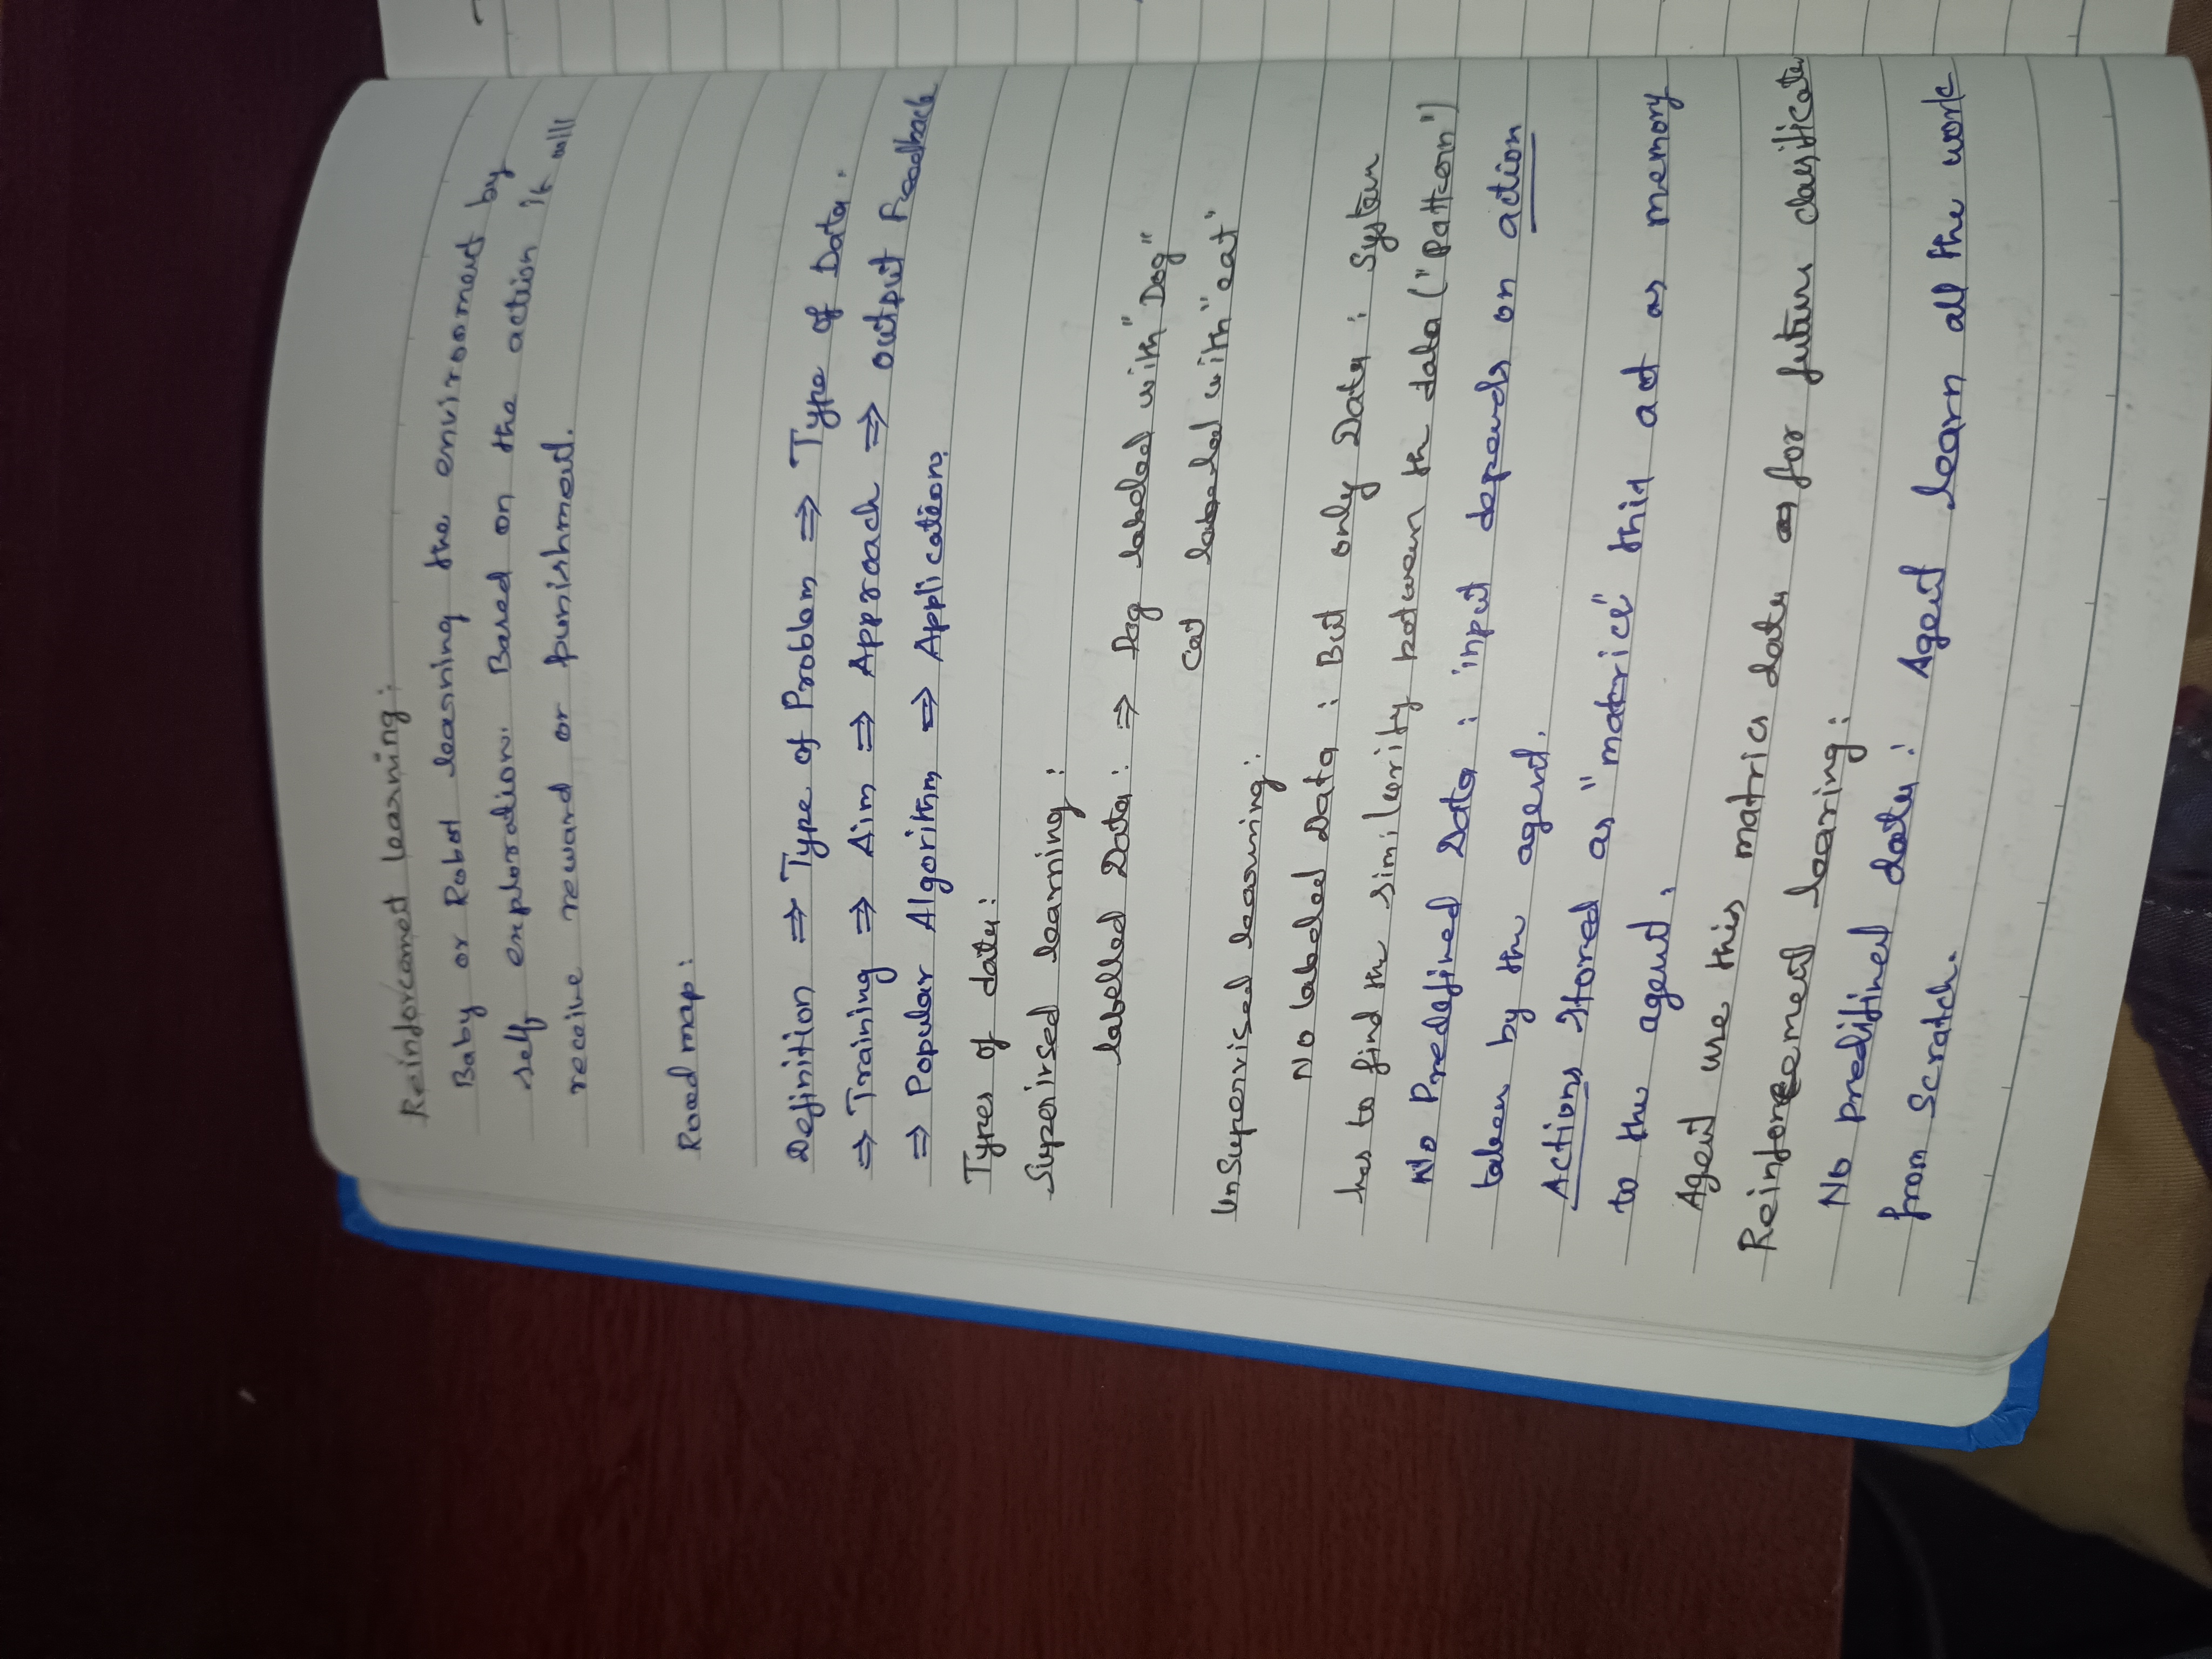 Reinforcement learning:
Baby or Robot learning the environment by
self exploration. Based on the action it will
receive reward or punishment.
Road map:
Definition ⇒ Type of Problem ⇒ Type of Data.
⇒ Training ⇒ Aim ⇒ Approach ⇒ output Feedback
⇒ Popular Algorithm ⇒ Application.
Types of data:
Supervirsed learning:
labelled Data: ⇒ Dog labeled with "Dog"
cat labeled with "cat"
UnSupervised learning:
No labeled Data : But only Data : System
has to find the similarity between the data ("Pattern")
No Predefined Data : input depends on action
taken by the agent.
Actions stored as "matrice" this act as memory
to the agent.
Agent use this matrics data for future classificate
Reinforcement learing:
No predifined data: Agent learn all the work
from Scratch.